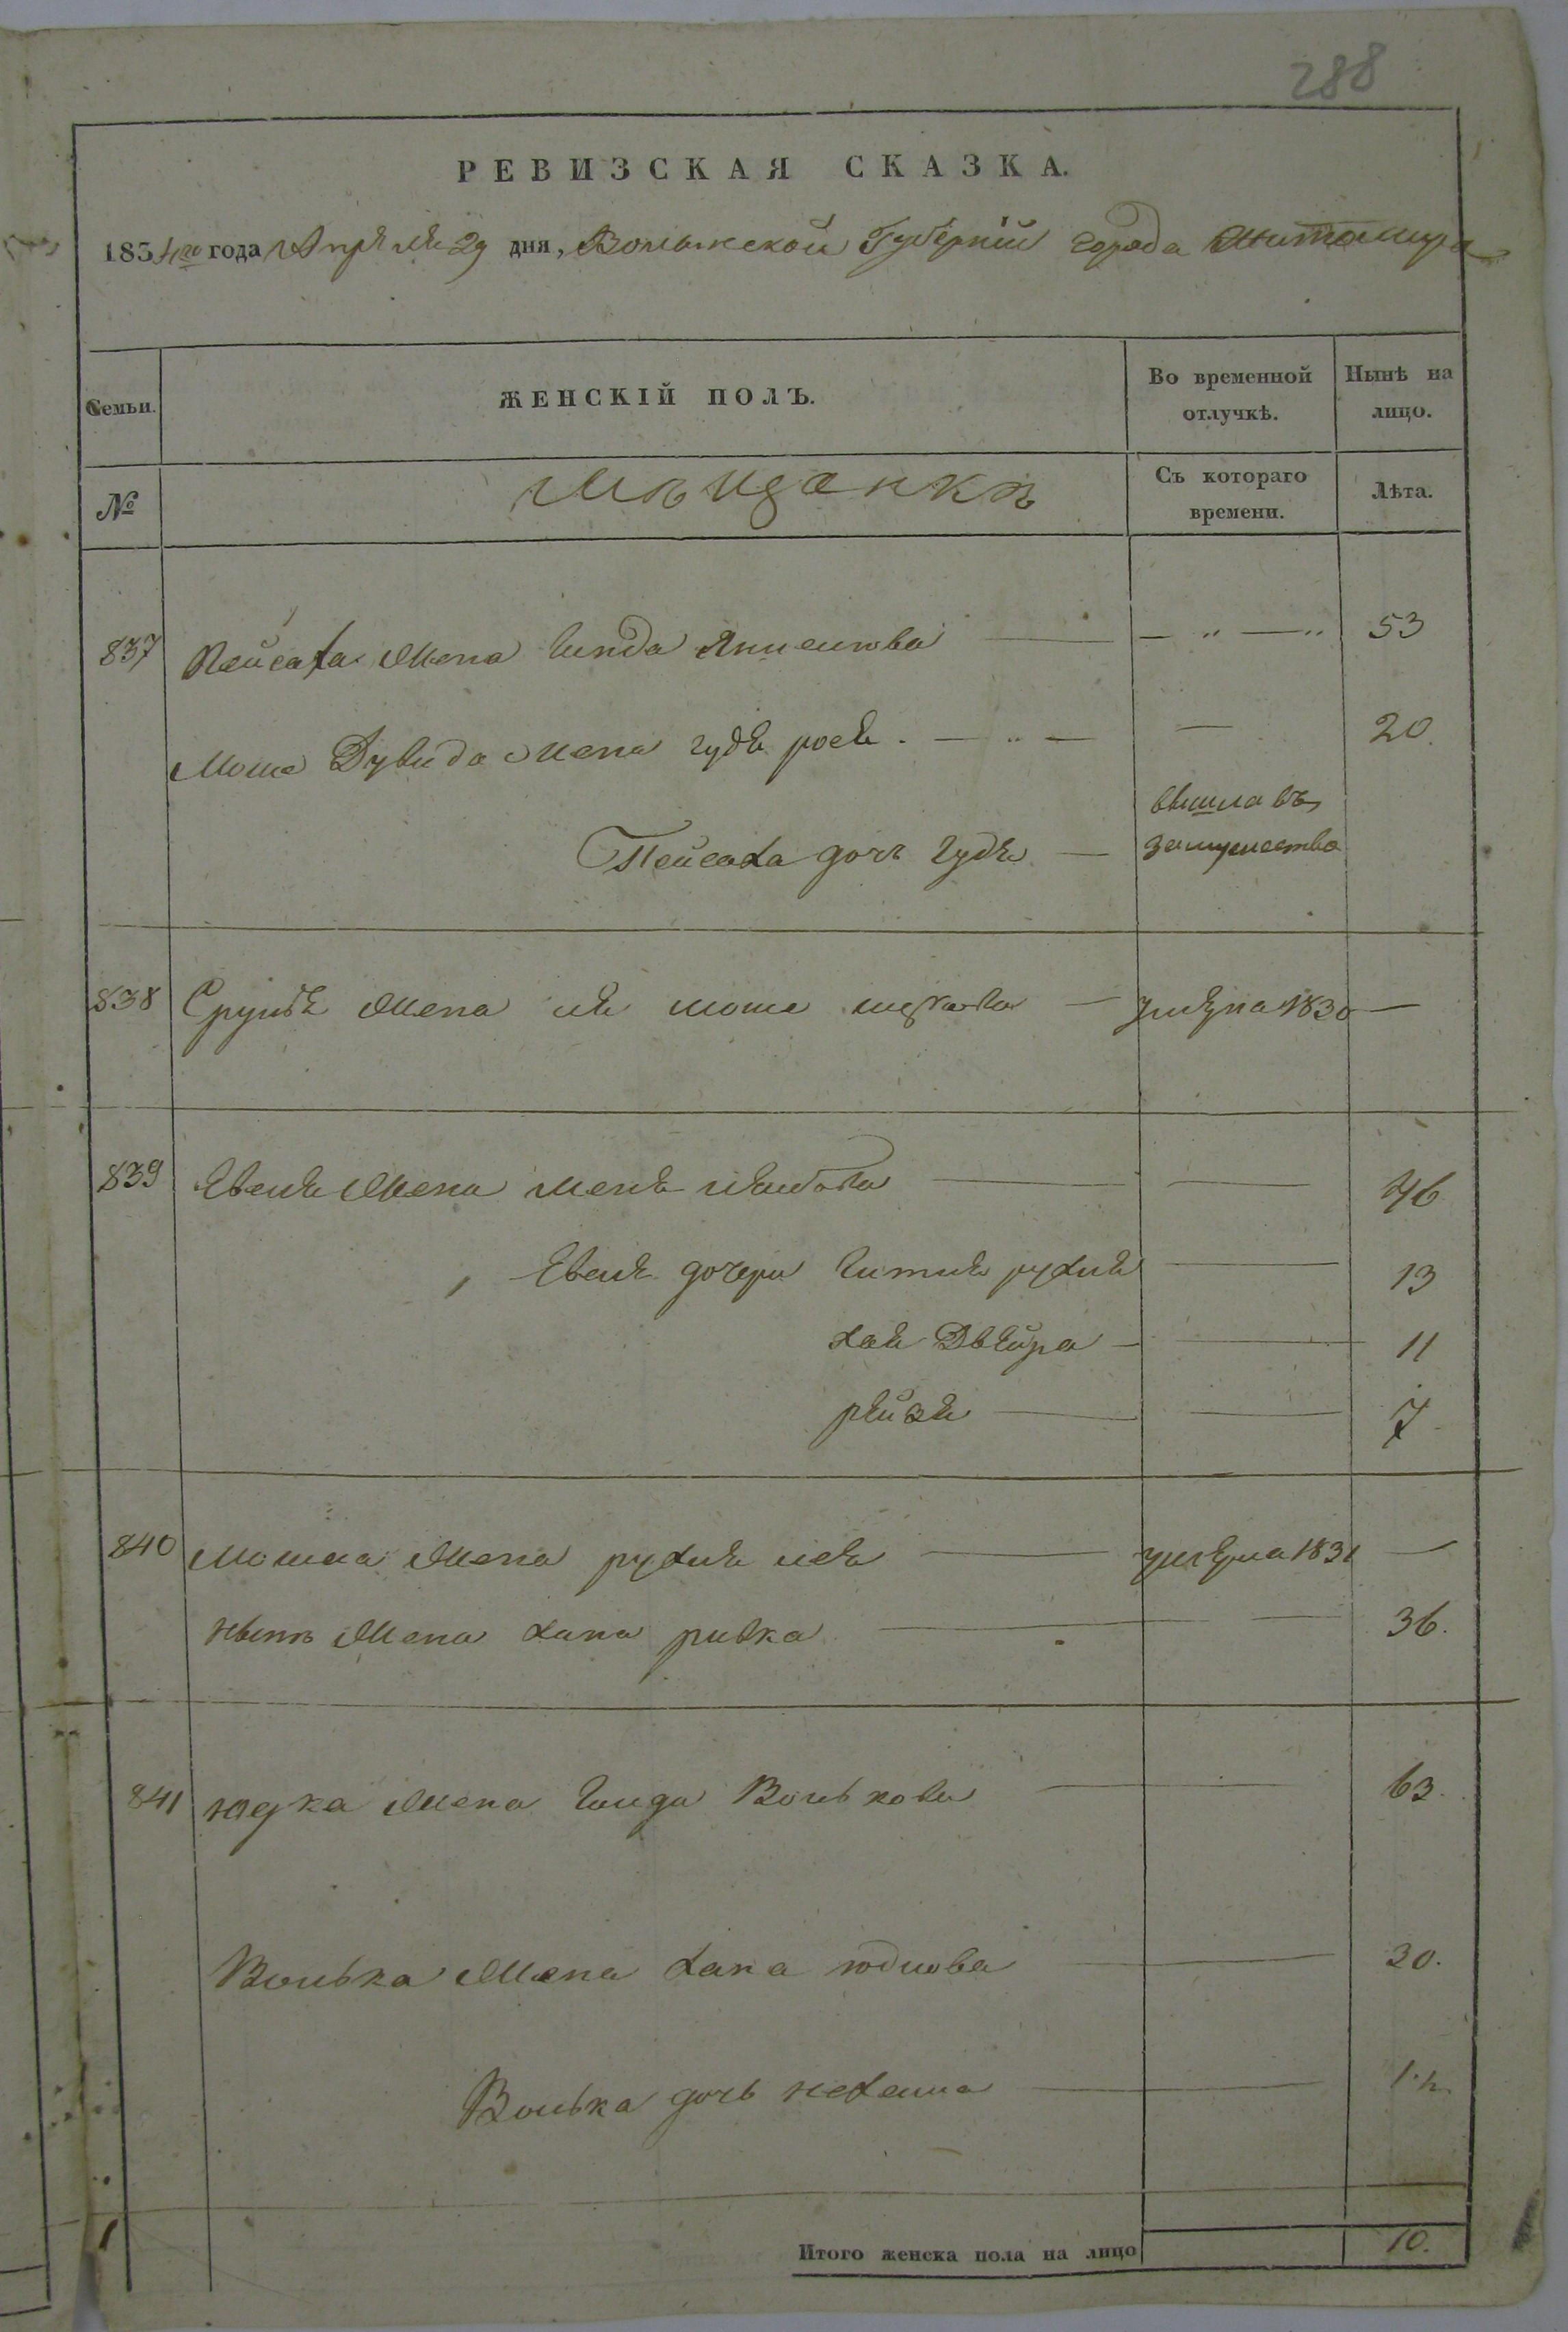 288
РЕВИЗСКАЯ СКАЗКА.
1834го года Апреля 29 дня, Волынской Губернiи города Житомира
Семьи. ЖЕНСКIЙ ПОЛЪ. Во временной отлучкѣ. Нынѣ на лицо.
№ Мѣщанкѣ Съ котораго времени. Лѣта.
837 Пейсаха жена Гинда — " — " 53
Моше Дувида жена Гудя рося. — " — — 20.
Пейсаха дочь Гудя — вышла въ замужество
838 Срулья жена Лея моше — умерла 1830 —
839 Евеля жена меня — — 46
Евеля дочери Гитля рухля — 13
хая Двейра — — 11
рейзя — — 7
840 Мошка жена рухля лея — умерла 1831 —
жена хана ривка — — 36.
841 Юдка жена Гинда Волькова — — 63.
Волька жена хана юдкова — — 30.
Волька дочь нехама — —
Итого женска пола на лицо 10.